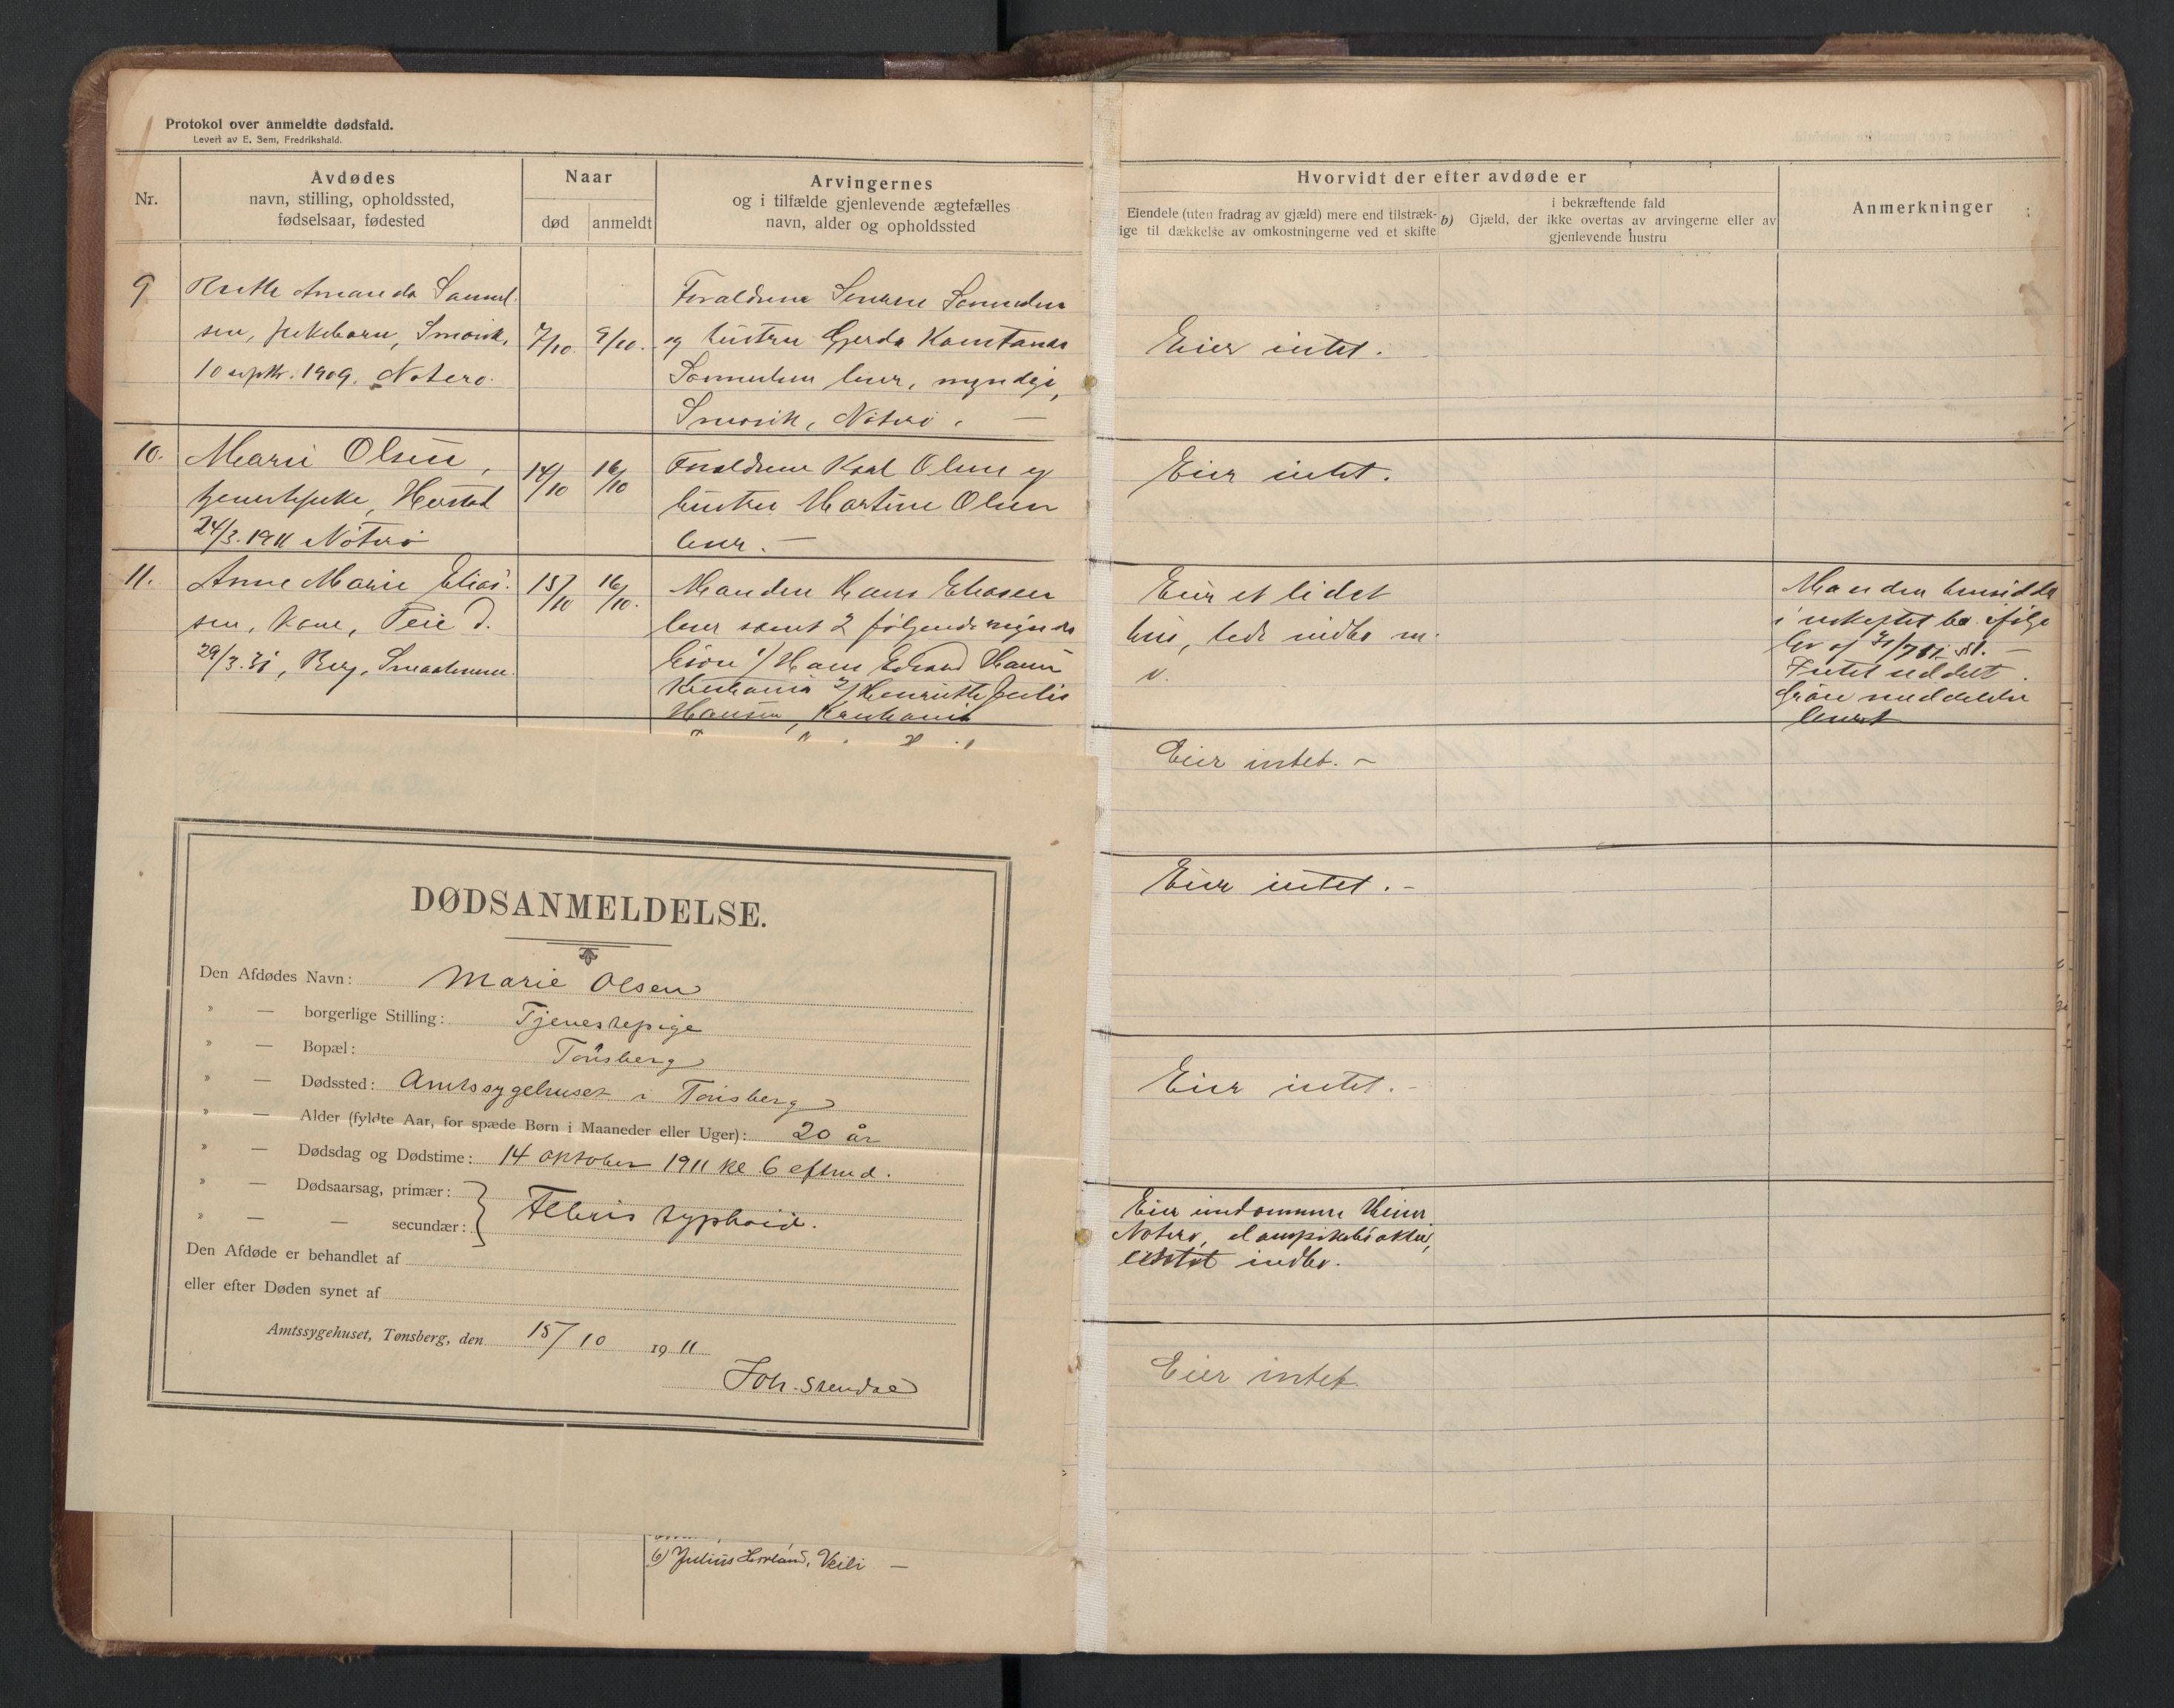 Protokol over anmeldte dødsfald.
Levert av E. Sem, Fredrikshald.
Nr.
Avdødes
navn, stilling, opholdssted,
fødselsaar, fødested
Naar
død
anmeldt
Arvingernes
og i tilfælde gjenlevende ægtefælles
navn, alder og opholdssted
9
Ruth Amanda Samuel
sen, pikebarn, Smørvik,
10 septbr. 1909. Nøterø.
7/10.
9/10.
Forældrene Samuelsen
og hustru Gjerda Konstanse
Samuelsen her, myndige,
Smørvik, Nøterø. —
10.
Marie Olsen,
tjenestepike, Herstad
24/3. 1911 Nøterø
14/10
16/10
Forældrene Karl Olsen og
hustru Martine Olsen
her. —
11.
Anne Marie Elias-
sen, kone, Teie d.
29/3. 31, Berg, Smaalenene.
15/10
16/10.
Manden Hans Eliasen
her samt 2 følgende myndige
børn 1/ Hans Edvard Hansen
Kristiania 2/ Henriette Julie
Hansen, Kristiania
DØDSANMELDELSE.
Den Afdødes Navn: Marie Olsen
" — borgerlige Stilling: Tjenestepige
" — Bopæl: Tønsberg
" — Dødssted: Amtssygehuset i Tønsberg
" — Alder (fyldte Aar, for spæde Børn i Maaneder eller Uger): 20 år
" — Dødsdag og Dødstime: 14 oktober 1911 kl 6 eftmd.
" — Dødsaarsag, primær:
" — — secundær: } Febris typhoid.
Den Afdøde er behandlet af
eller efter Døden synet af
Amtssygehuset, Tønsberg, den 15/10 1911
Joh. Stendal
6) Julius Hovland, Veili —
Hvorvidt der efter avdøde er
Eiendele (uten fradrag av gjæld) mere end tilstræk-
ige til dækkelse av omkostningerne ved et skifte
b) Gjæld, der i bekræftende fald
ikke overtas av arvingerne eller av
gjenlevende hustru
Anmerkninger
Eier intet.
Eier intet.
Eier et lidet
hus, lidt indbo m.
v.
Manden hensidder
i uskiftet bo ifølge
Intet uddelt.
Eier intet. —
Eier intet. —
Eier intet. —
Eier
Nøterø,
indbo.
Eier intet